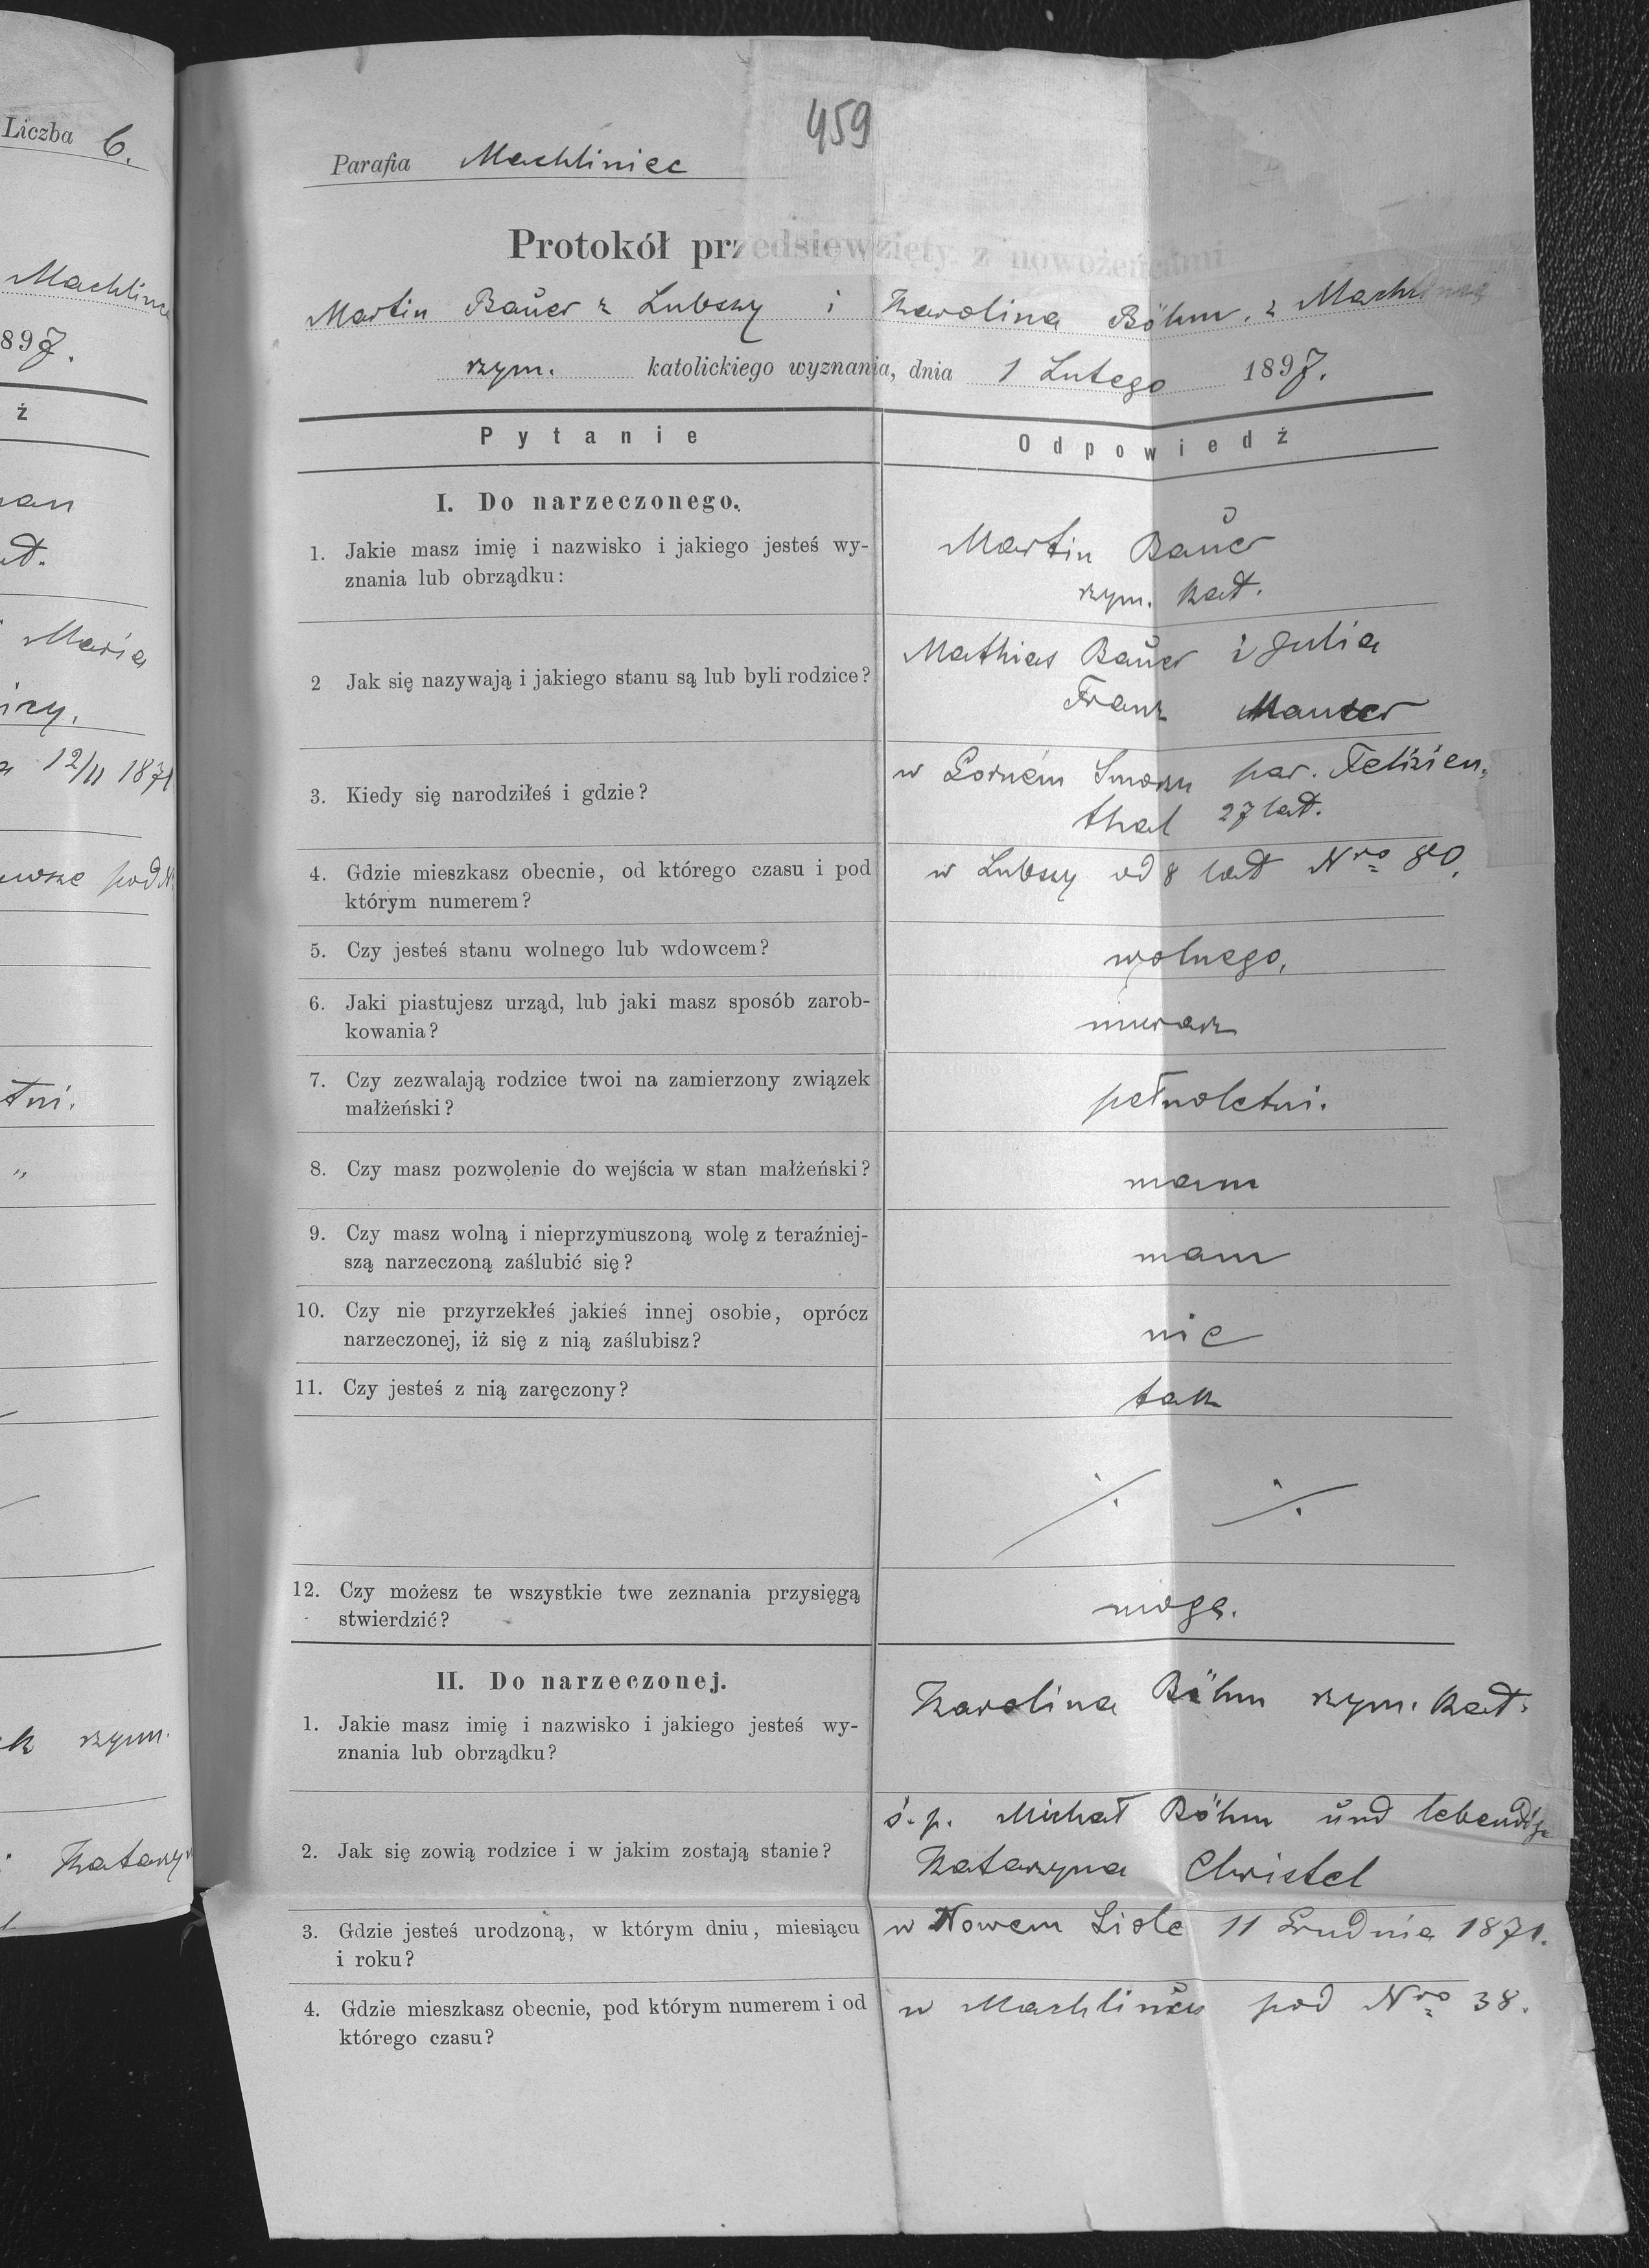 Liczba 6.
Machlince
897.
ż
Maria
12/11 1871
pod
rzym.
Katarzy
459
Parafia Machliniec
Protokół przedsięwzięty z nowożeńcami
Martin Baŭer z Lubszy i Karolina Böhm z Machlińca
rzym. katolickiego wyznania, dnia 1 Lutego 1897.
Pytanie Odpowiedź
I. Do narzeczonego.
1. Jakie masz imię i nazwisko i jakiego jesteś wy-
znania lub obrządku:
Martin Baŭer
rzym. kat.
2 Jak się nazywają i jakiego stanu są lub byli rodzice?
Mathias Baŭer i Julia
Franz Mauser
3. Kiedy się narodziłeś i gdzie?
w Gorném Smorzu par. Felizien-
thal 27 lat.
4. Gdzie mieszkasz obecnie, od którego czasu i pod
którym numerem?
w Lubszy od 8 lat Nro 80.
5. Czy jesteś stanu wolnego lub wdowcem?
wolnego,
6. Jaki piastujesz urząd, lub jaki masz sposób zarob-
kowania?
murarz
7. Czy zezwalają rodzice twoi na zamierzony związek
małżeński?
pełnoletni.
8. Czy masz pozwolenie do wejścia w stan małżeński?
mam
9. Czy masz wolną i nieprzymuszoną wolę z teraźniej-
szą narzeczoną zaślubić się?
mam
10. Czy nie przyrzekłeś jakieś innej osobie, oprócz
narzeczonej, iż się z nią zaślubisz?
nie
11. Czy jesteś z nią zaręczony?
tak
12. Czy możesz te wszystkie twe zeznania przysięgą
stwierdzić?
mogę.
II. Do narzeczonej.
1. Jakie masz imię i nazwisko i jakiego jesteś wy-
znania lub obrządku?
Karolina Böhm rzym. kat.
2. Jak się zowią rodzice i w jakim zostają stanie?
ś.p. Michał Böhm ŭnd lebendige
Katarzyna Christel
3. Gdzie jesteś urodzoną, w którym dniu, miesiącu
i roku?
w Nowem Siole 11 Grudnia 1871.
4. Gdzie mieszkasz obecnie, pod którym numerem i od
którego czasu?
w Machlińcu pod Nro 38.